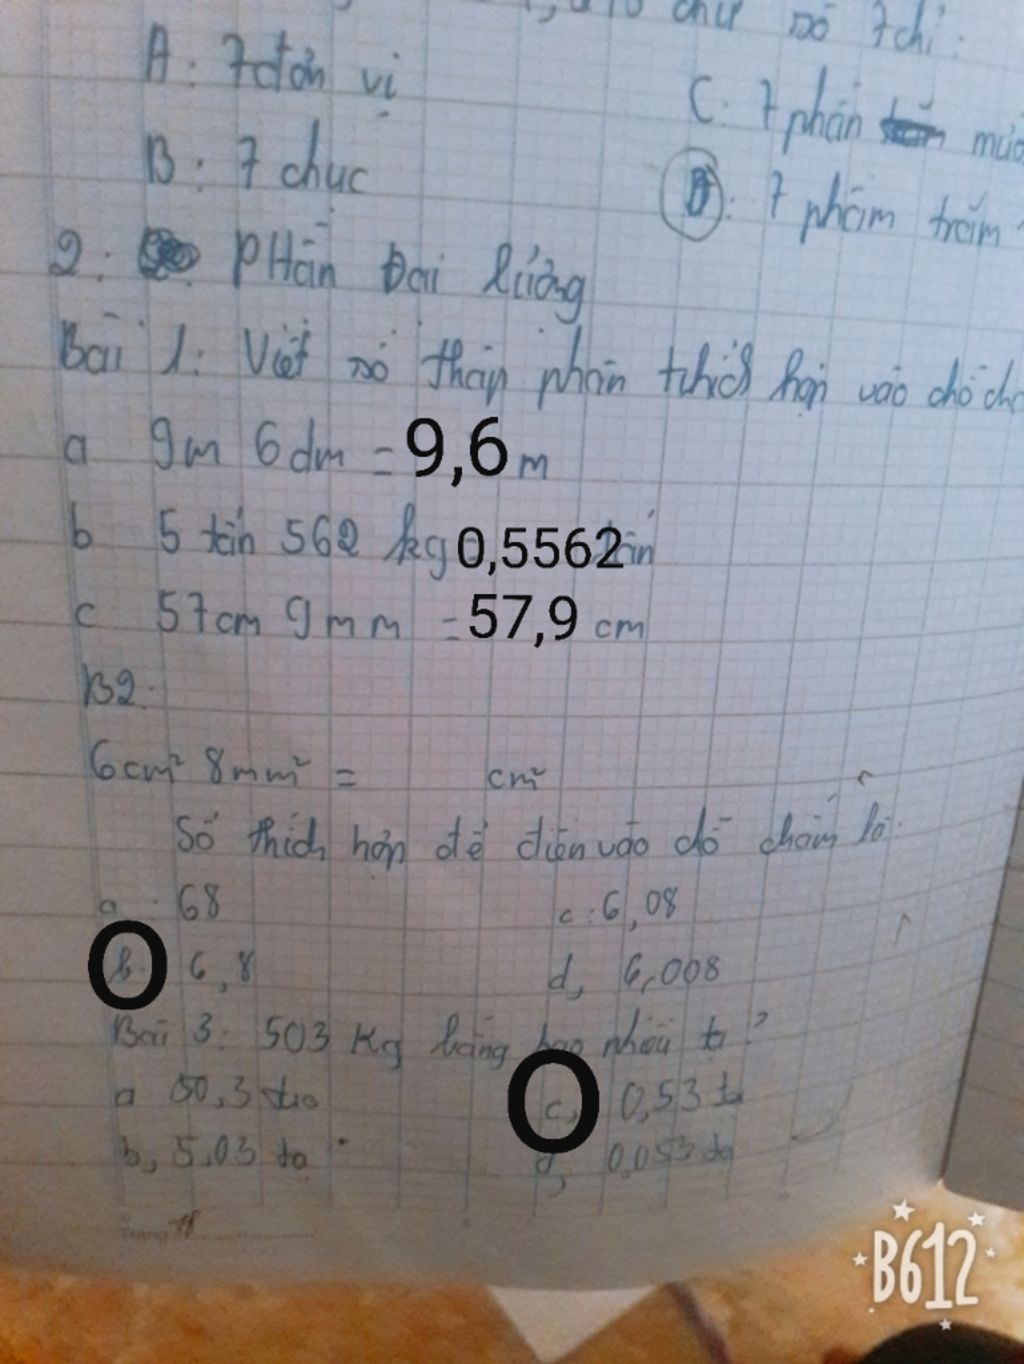 chữ số 7 chỉ:
A: 7 đơn vị
C: 7 phần
B: 7 chục
D: 7 phầm trăm
2: PHẦN Đại lượng
Bài 1: Viết số thập phân thích hợp vào chỗ
a 9m 6dm = 9,6 m
b 5 tấn 562 kg 0,5562 tấn
c 57cm 9mm = 57,9 cm
B2:
6cm² 8mm² = cm²
Số thích hợp để điền vào chỗ chấm là:
a 68
c: 6,08
b 6,8
d, 6,008
Bài 3: 503 Kg bằng bao nhiêu tạ?
a 50,3 tạ
c, 0,53 tạ
b, 5,03 tạ
d, 0,053 tạ
Trang 78
B612